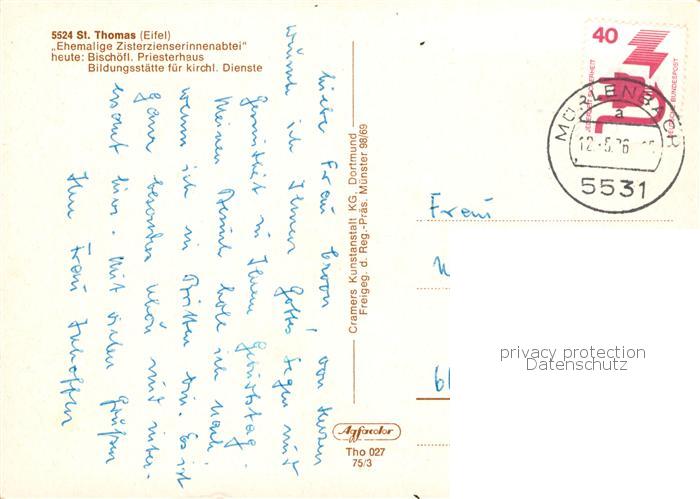 5524 St. Thomas (Eifel)
„Ehemalige Zisterzienserinnenabtei"
heute: Bischöfl. Priesterhaus
Bildungsstätte für kirchl. Dienste
Liebe Frau von Herzen
wünsche ich Ihnen Gottes Segen und
Gesundheit zu Ihrem Geburtstag.
Meinen Dank hole ich nach
wenn ich in Bitten bin. Es ist
ganz besonders schön und inter-
essant hier. Mit vielen Grüßen
Ihre Frau
Cramers Kunstanstalt KG, Dortmund
Freigeg. d. Reg.-Präs. Münster 98/69
Agfacolor
Tho 027
75/3
40
JEDERZEIT SICHERHEIT
DEUTSCHE BUNDESPOST
MÜRLENBACH
a
12.-5.76
5531
Frau
privacy protection
Datenschutz